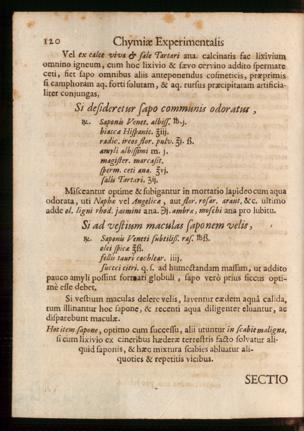 120 Chymiæ Experimentalis
Vel ex calce vivâ & sale Tartari ana. calcinatis fac lixivium
omnino igneum, cum hoc lixivio & sævo cervino addito spermate
ceti, fiet sapo omnibus aliis anteponendus cosmeticis, præprimis
si camphoram aq. forti solutam, & aq. rursus præcipitatam artificia-
liter conjungas,
Si desideretur sapo communis odoratus,
℞. Saponis Venet. albiss. ℔.j.
biacca Hispanic. ℥iij.
radic. ireos flor. pulv. ℥. ß.
amyli albissimi m. j.
magister. marcasit.
sperm. ceti ana. ʒvj.
salis Tartari. ʒij.
Misceantur optime & subigantur in mortario lapideo cum aqua
odorata, uti Naphæ vel Angelicæ, aut flor. rosar. arant, &c. ultimo
adde ol. ligni rhod. jasmini ana. ℈j. ambræ, moschi ana pro lubitu.
Si ad vestium maculas saponem velis,
℞. Saponis Veneti subtiliss. ras. ℔ß.
olei spicæ ℥ß.
fellis tauri cochlear. iiij.
succi citri. q. s. ad humectandam massam, ut addito
pauco amyli possint formari globuli, sapo verò prius siccus opti-
mè esse debet.
Si vestium maculas delere velis, laventur eædem aquâ calida,
tum illinantur hoc sapone, & recenti aqua diligenter eluantur, ac
disparebunt maculæ.
Hoc item sapone, optimo cum successu, alii utuntur in scabie maligna,
si cum lixivio ex cineribus hæderæ terrestris facto solvatur ali-
quid saponis, & hæc mixtura scabies abluatur ali-
quoties & repetitis vicibus.
SECTIO